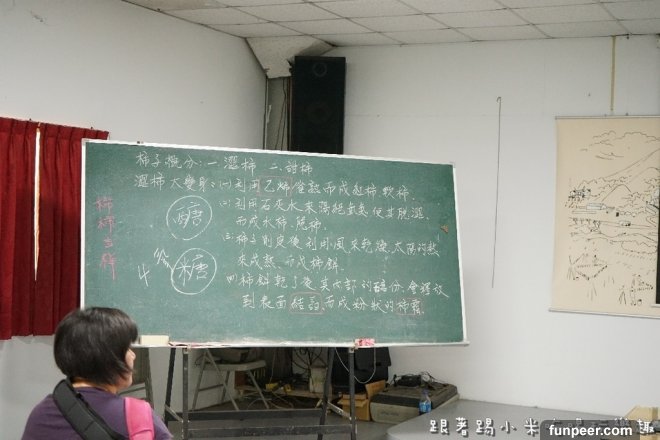 柿子概分:一.澀柿 二.甜柿
澀柿大變身:(一)利用乙烯催熟而成紅柿軟柿.
(二)利用石灰水來隔絕氧氣使其脫澀.
而成水柿.脆柿.
(三)柿子削皮後利用風來乾燥.太陽的熱
來成熟.而成柿餅.
(四)柿餅乾了後其內部的醣份.會釋放
到表面結晶.而成粉狀的柿霜.
醣
糖
柿柿
跟著踢小米
www.funpeer.com